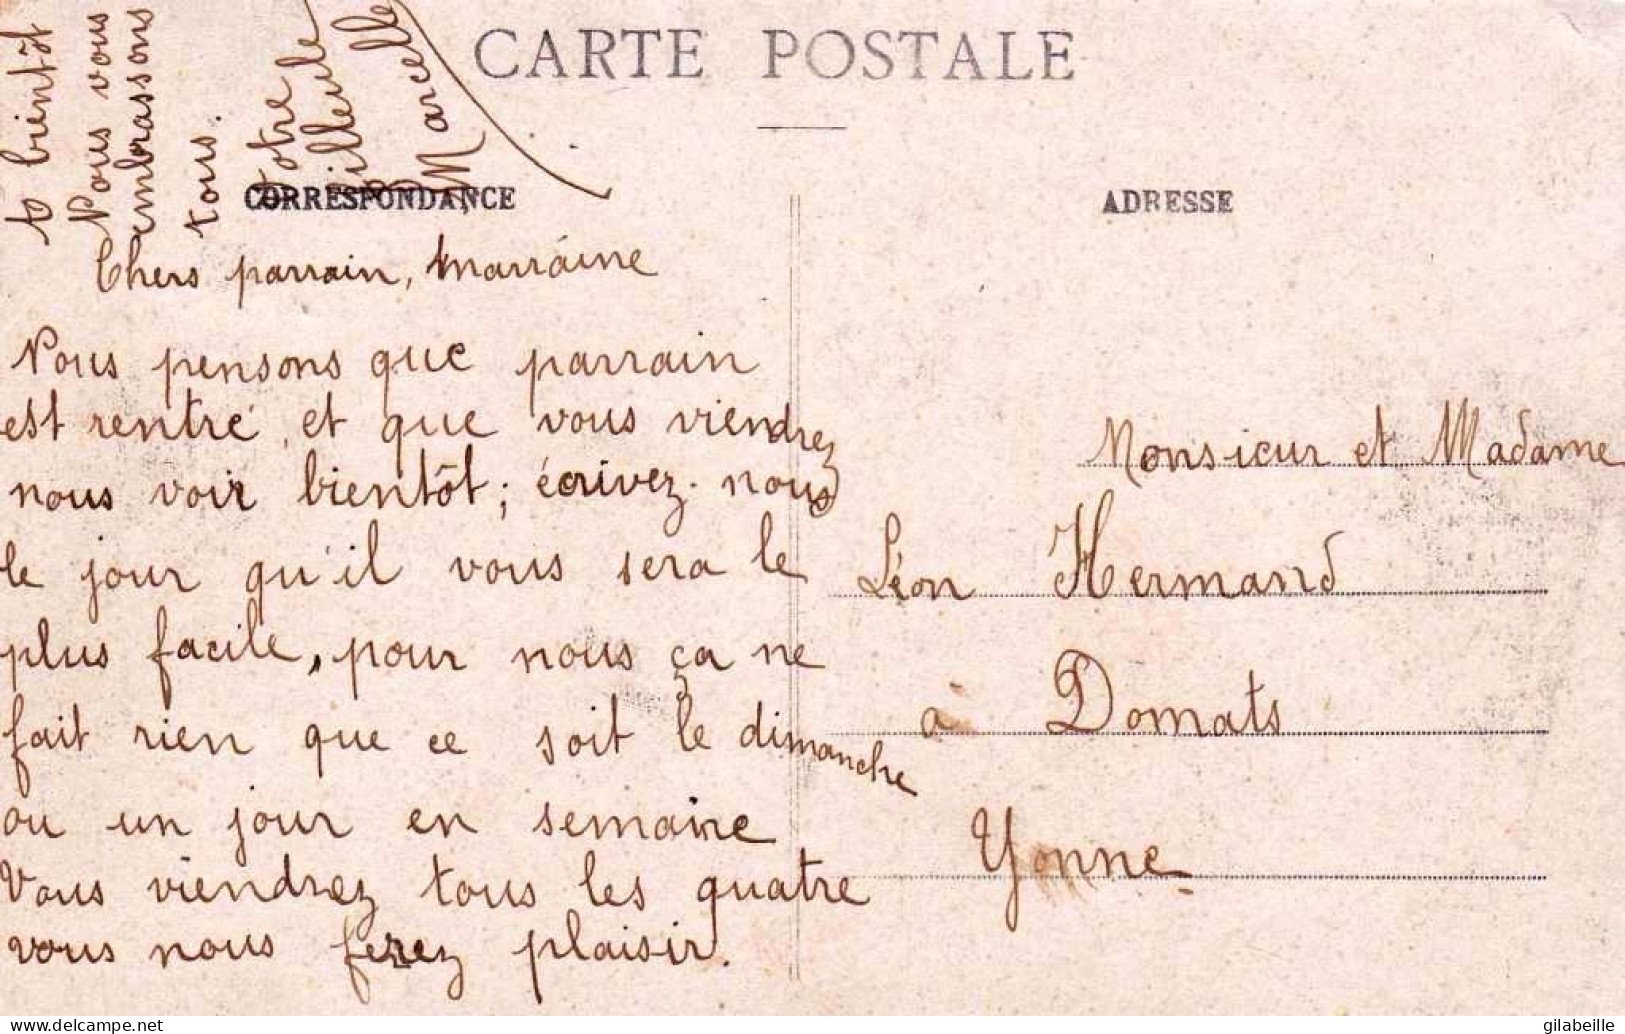 CARTE POSTALE
CORRESPONDANCE
ADRESSE
Chers parrain, marraine
Nous pensons que parrain
est rentré, et que vous viendrez
nous voir bientôt; écrivez-nous
le jour qu'il vous sera le
plus facile, pour nous ça ne
fait rien que ce soit le dimanche
ou un jour en semaine
Vous viendrez tous les quatre
vous nous ferez plaisir.
à bientôt
Nous vous
embrassons
tous.
Votre
filleule
Marcelle
Monsieur et Madame
Léon Hermand
à Domats
Yonne
www.delcampe.net
gilabeille